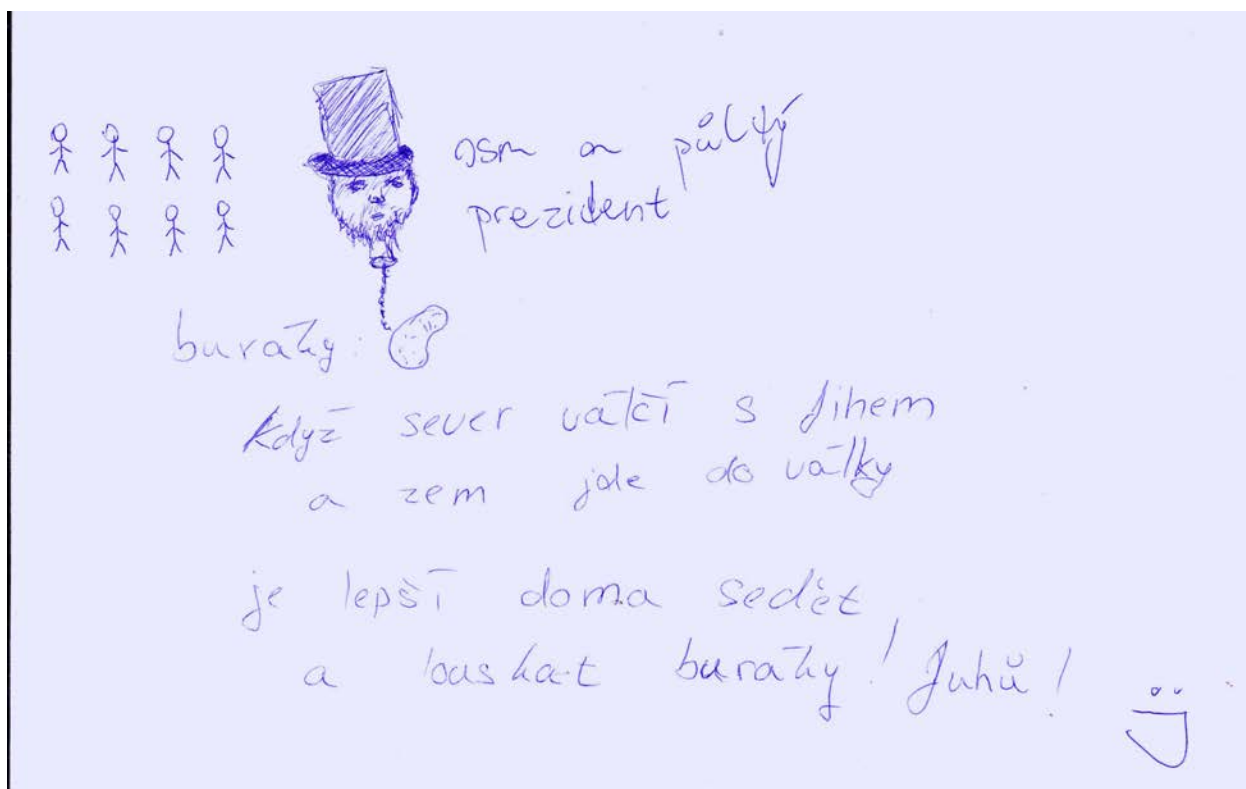 osm a půltý
prezident
buráky:
Když sever válčí s Jihem
a zem jde do války
je lepší doma sedět,
a louskat buráky! Juhů!